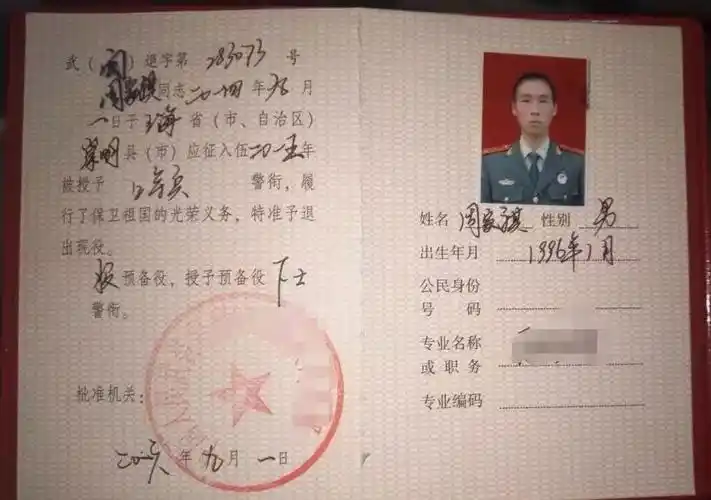 武（ ）退字第 283073 号
周家骐同志二〇一四年九月
一日于上海省（市、自治区）
崇明县（市）应征入伍二〇一五年
被授予 上等兵 警衔，履
行了保卫祖国的光荣义务，特准予退
出现役。
服预备役，授予预备役下士
警衔。
批准机关：
二〇一六年九月一日
姓名 周家骐 性别 男
出生年月 1996年1月
公民身份
号 码
专业名称
或职务
专业编码